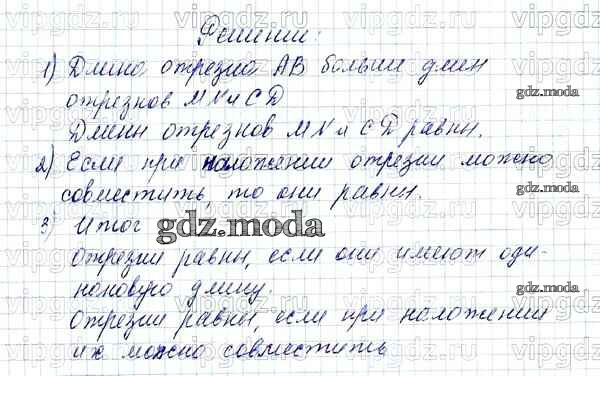 Решение:
1) Длина отрезка АВ больше длин
отрезков MN и CD
Длины отрезков MN и CD равны.
2) Если при наложении отрезки можно
совместить, то они равны.
3) Итог
Отрезки равны, если они имеют оди-
наковую длину.
Отрезки равны, если при наложении
их можно совместить
gdz.moda
gdz.moda
gdz.moda
gdz.moda
gdz.moda
vipgdz